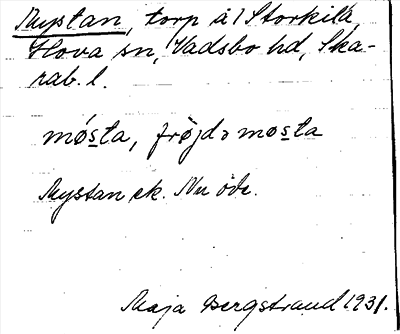 Mystan, torp å Storkila,
Hova sn, Vadsbo hd, Ska-
rab. l.
mǿs̲ta, frø̀jdɔ møs̲ta
Mystan ek. Nu öde.
Maja Bergstrand 1931.